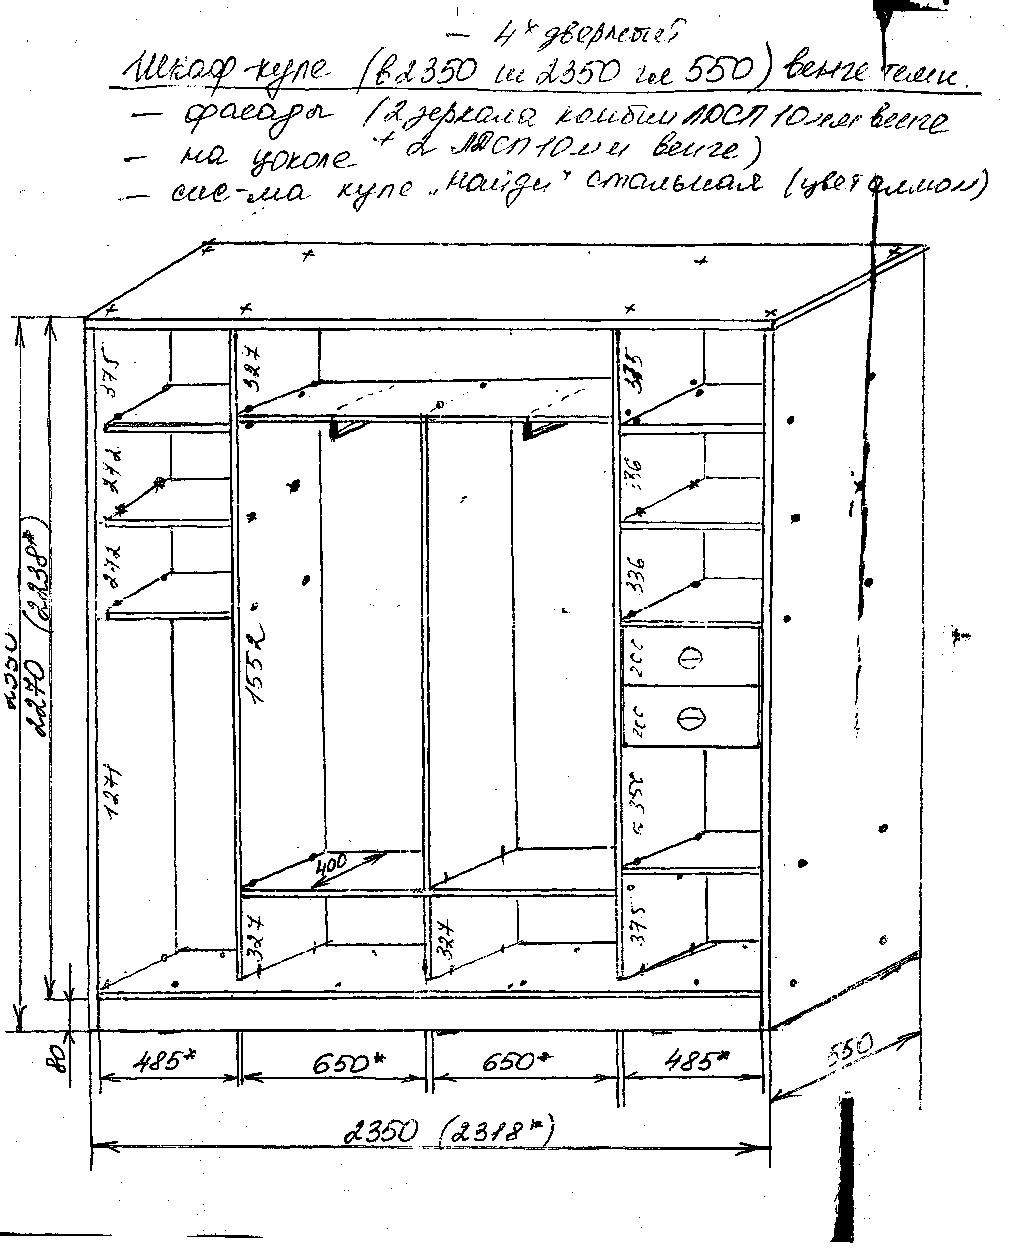 — 4х дверный
Шкаф-купе (в2350 ш 2350 гл 550) венге темн.
— фасады (2 зеркала комбин ЛДСП 10мм венге
+ 2 ЛДСП 10мм венге)
— на цоколе
— сис-ма купе „Найди“ стальная (цвет
375
327
375
242
336
242
336
2270 (2238*)
2350
1552
200
200
1271
350
400
327
327
375
80
485*
650*
650*
485*
550
2350 (2318*)